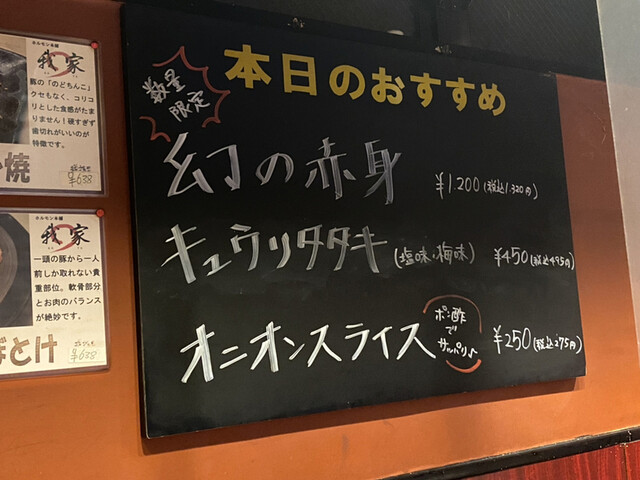 本日のおすすめ
数量
限定
幻の赤身 ¥1.200(税込1.320円)
キュウリタタキ(塩味・梅味) ¥450(税込495円)
オニオンスライス ポン酢
で
サッパリ♪ ¥250(税込275円)
ホルモン本舗
我家
豚の「のどちんこ」
クセもなく、コリコ
リとした食感がたま
りません！硬すぎず
歯切れがいいのが
特徴です。
焼
¥638
ホルモン本舗
我家
一頭の豚から一人
前しか取れない貴
重部位。軟骨部分
とお肉のバランス
が絶妙です。
どとけ
¥638